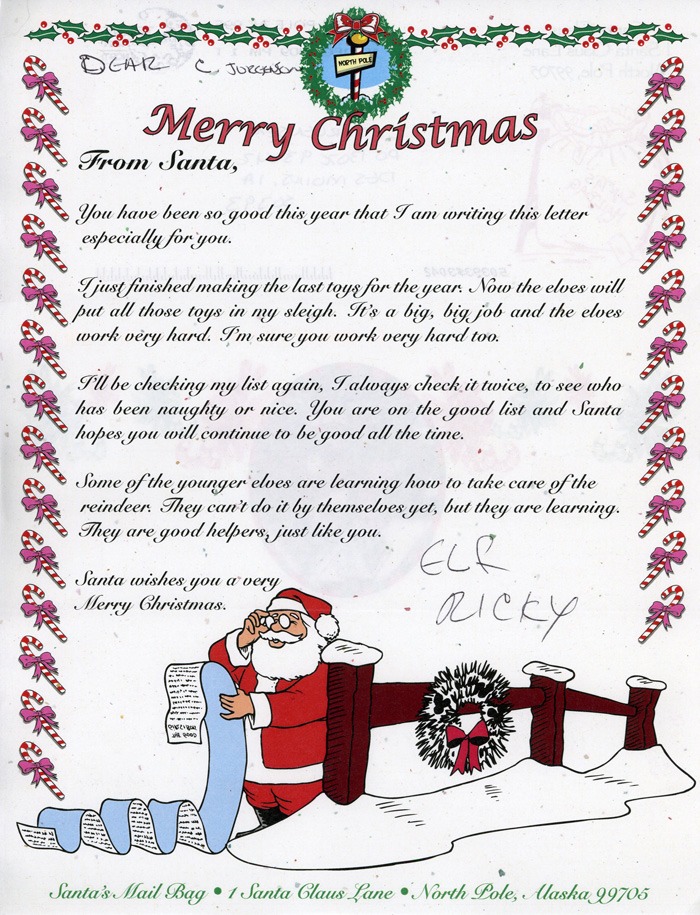 NORTH POLE
DEAR C JORGENSON
Merry Christmas
From Santa,
You have been so good this year that I am writing this letter
especially for you.
I just finished making the last toys for the year. Now the elves will
put all those toys in my sleigh. It's a big, big job and the elves
work very hard. I'm sure you work very hard too.
I'll be checking my list again, I always check it twice, to see who
has been naughty or nice. You are on the good list and Santa
hopes you will continue to be good all the time.
Some of the younger elves are learning how to take care of the
reindeer. They can't do it by themselves yet, but they are learning.
They are good helpers, just like you.
ELF
RICKY
Santa wishes you a very
Merry Christmas.
Santa's Mail Bag • 1 Santa Claus Lane • North Pole, Alaska 99705